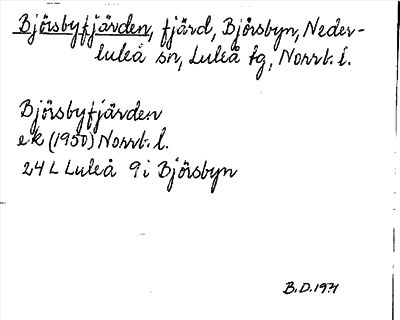 Björsbyfjärden, fjärd, Björsbyn, Neder-
luleå sn, Luleå tg, Norrb. l.
Björsbyfjärden
ek (1950) Norrb. l.
24 L Luleå 9 i Björsbyn
B.D. 1971